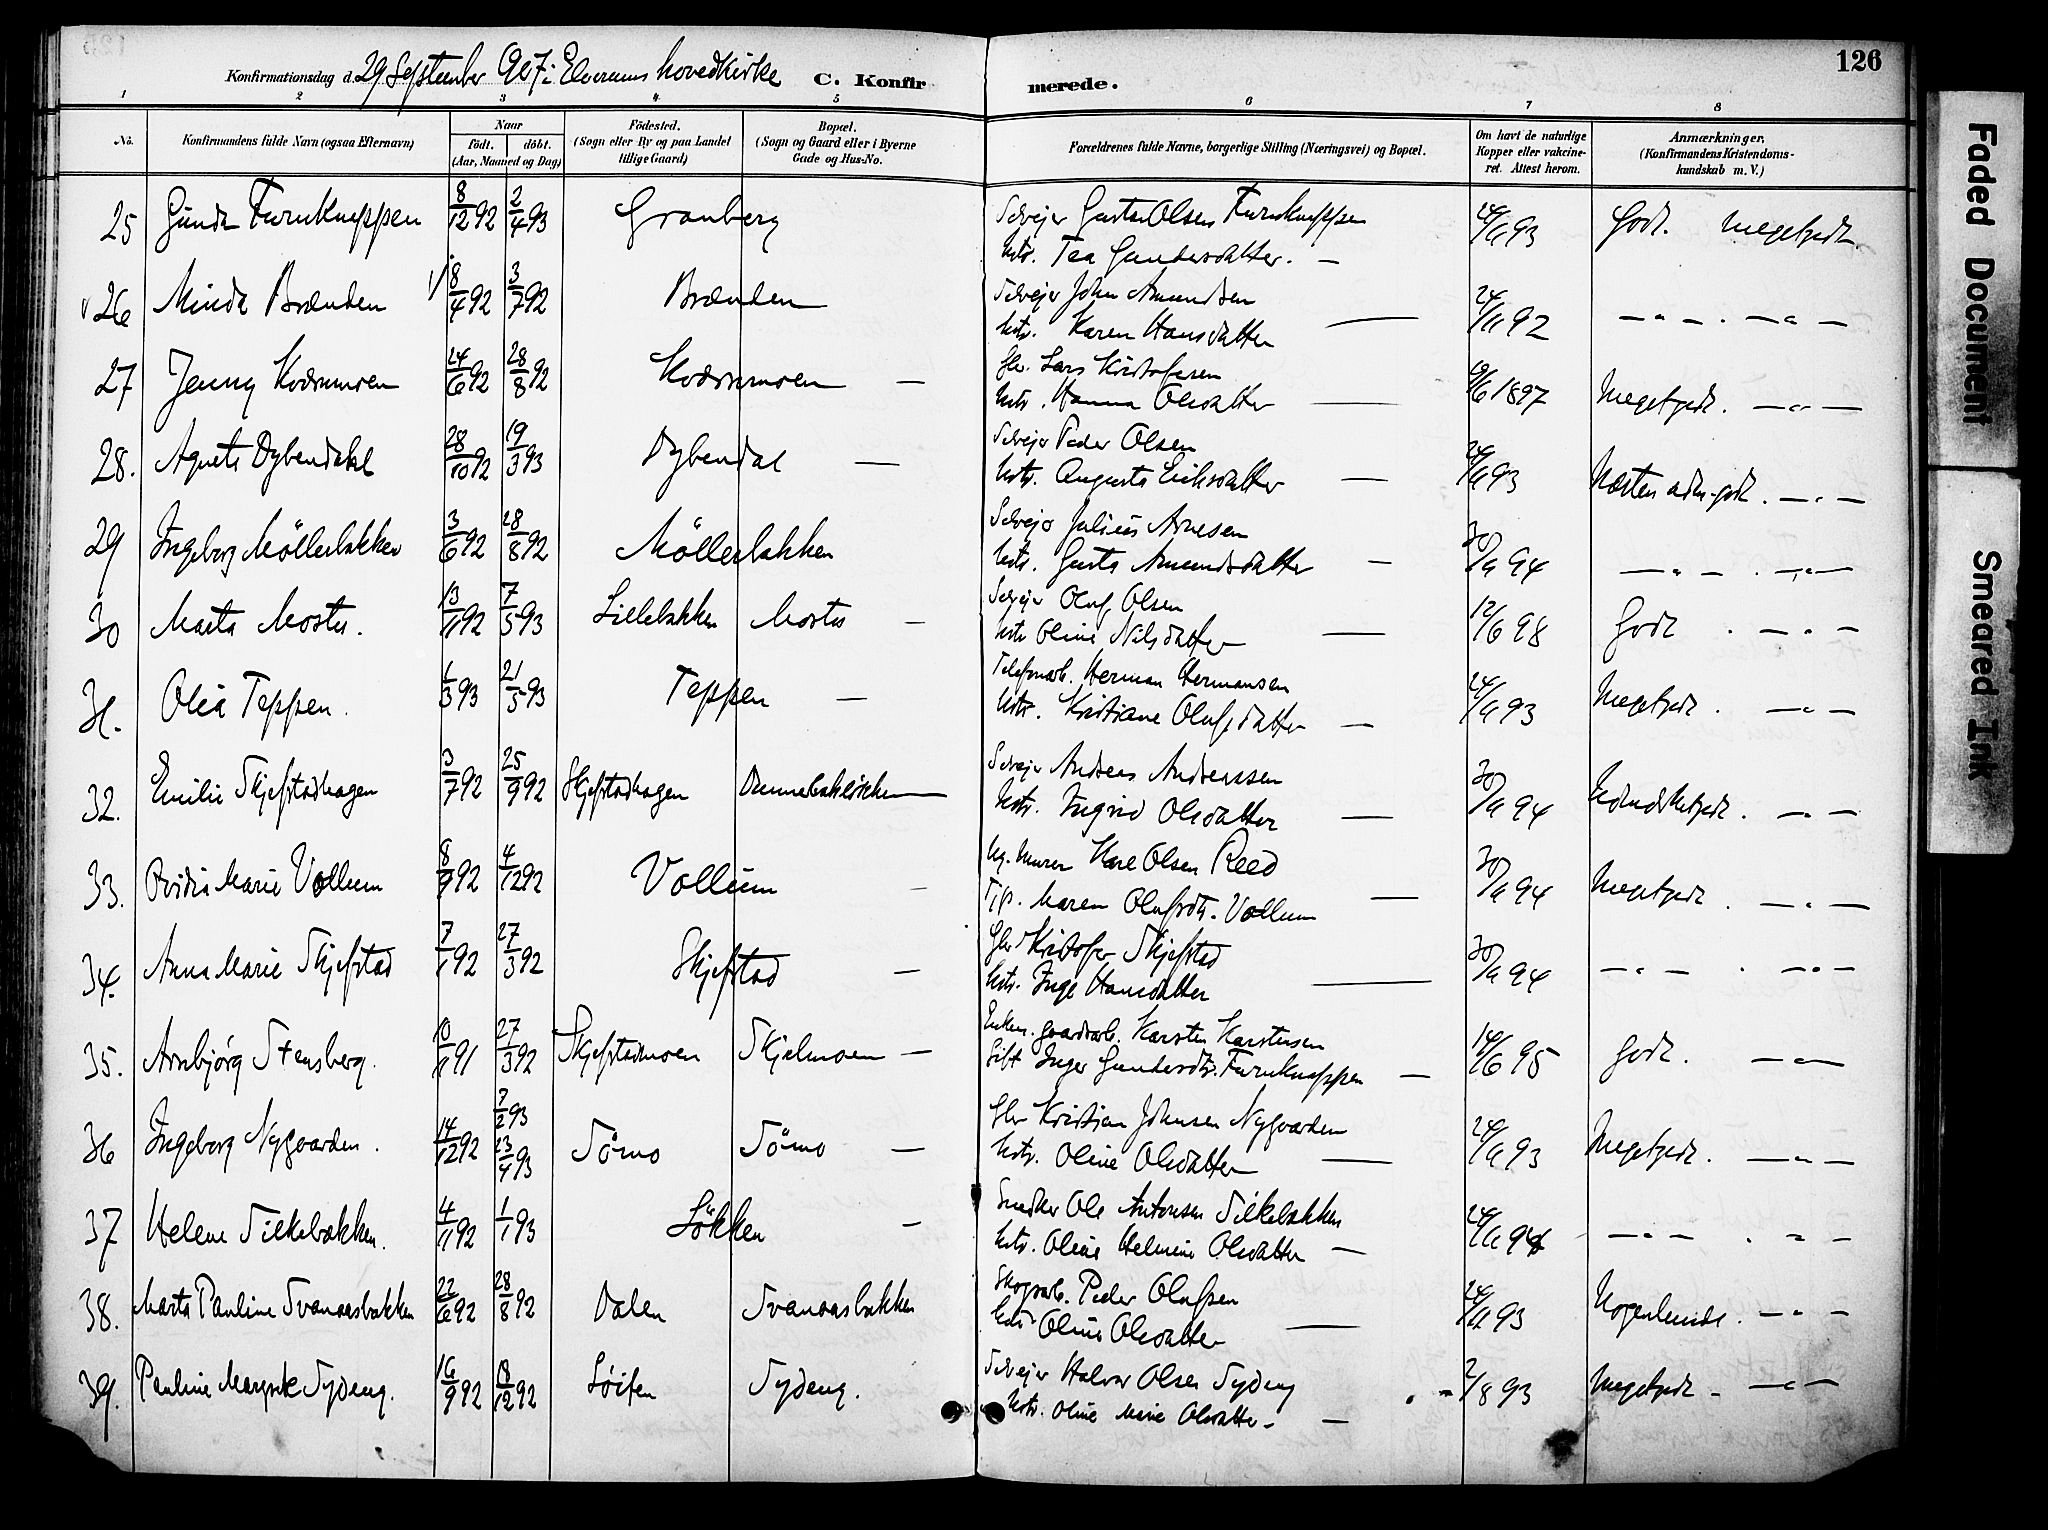 126
Konfirmationsdag d. 29 September 907 i Elverums hovedkirke C. Konfirmerede.
1 2 3 4 5 6 7 8
No. Konfirmandens fulde Navn (ogsaa Efternavn) Naar født. døbt. (Aar, Maaned og Dag) Fødested. (Sogn eller By og paa Landet tillige Gaard) Bopæl. (Sogn og Gaard eller i Byerne Gade og Hus-No. Forældrenes fulde Navne, borgerlige Stilling (Næringsvei) og Bopæl. Om havt de naturlige Kopper eller vakcineret. Attest herom. Anmærkninger, (Konfirmandens Kristendomskundskab m. V.)
25 Gunda Furuknappen 8/12 92 2/4 93 Granberg Selvejer Gustav Olsen Furuknappen 24/11 93 Godt. Megetgodt.
Hstr. Tea Gundersdatter. —
26 Minda Brænden 8/4 92 3/7 92 Brænden Selvejer John Amundsen 24/11 92 — " — . — " —
Hstr. Karen Hansdatter
27 Jenny Kværnmoen 24/6 92 28/8 92 Kværnmoen — Gbr. Lars Kristofersen
Hstr. Hanna Olsdatter — 9/6 1897 Megetgodt. — " —
28. Agneta Dybendahl 28/10 92 19/3 93 Dybendal — Selvejer Peder Olsen
Hstr. Augusta Eriksdatter — 24/11 93 Næsten udm. godt. — " —
29 Ingeborg Möllerbakken 3/6 92 28/8 92 Möllerbakken Selvejer Julius Arnesen
Hstr. Gusta Amundsdatter — 30/11 94 — " — . — " —
30 Marta Moster. 13/11 92 7/5 93 Lillebakken Moster — Selvejer Oluf Olsen 12/6 98 Godt . — " —
Hstr Oline Nilsdatter —
31. Olea Teppen. 1/3 93 21/5 93 Teppen — Telefonarb. Herman Hermansen
Hstr. Kristiane Olufsdatter — 24/11 93 Megetgodt. — " —
32. Emilie Skjefstadhagen 3/7 92 25/9 92 Skjefstadhagen Selvejer Andreas Andreassen
Hstr. Ingrid Olsdatter — 30/11 94 — " —
33. Ovidia Marie Vollum 8/9 92 4/12 92 Vollum — Ug. Murer Karl Olsen Reed
Pig. Maren Olufsdtr. Vollum — 30/11 94 Megetgodt . — " —
34. Anna Marie Skjefstad 7/1 92 27/3 92 Skjefstad — Gbr Kristofer Skjefstad
Hstr. Inge Hansdatter — 30/11 94 — " — . — " —
35. Arnbjörg Stensberg. 10/11 91 27/3 92 Skjefstadmoen Skjelmoen — Enkem. gaardarb. Karsten Karstensen
Gift Inger Gundersdtr. Furuknappen — 14/6 95 Godt. — " —
36 Ingeborg Nygaarden. 14/12 92 7/2 93 23/4 93 Sörmo Sörmo — Gbr Kristian Johnsen Nygaarden
Hstr. Oline Olsdatter — 24/11 93 Megetgodt. — " —
37 Helene Silkebækken. 4/11 92 1/1 93 Lökken — Snedker Ole Antonsen Silkebækken
Hstr. Oline Helmine Olsdatter — 24/11 94 — " — . — " —
38. Marta Pauline Svanaasbakken 22/6 92 28/8 92 Dalen Svanaasbakken Skogsarb. Peder Olufsen
Hstr Oline Olsdatter — 24/11 93 Nogenlunde. — " —
39. Pauline Margrete Sydeng. 16/9 92 18/12 92 Løiten Sydeng. Selvejer Halvor Olsen Sydeng
Hstr. Oline Marie Olsdatter — 2/8 93 Megetgodt — — " —
Faded Document
Smeared Ink